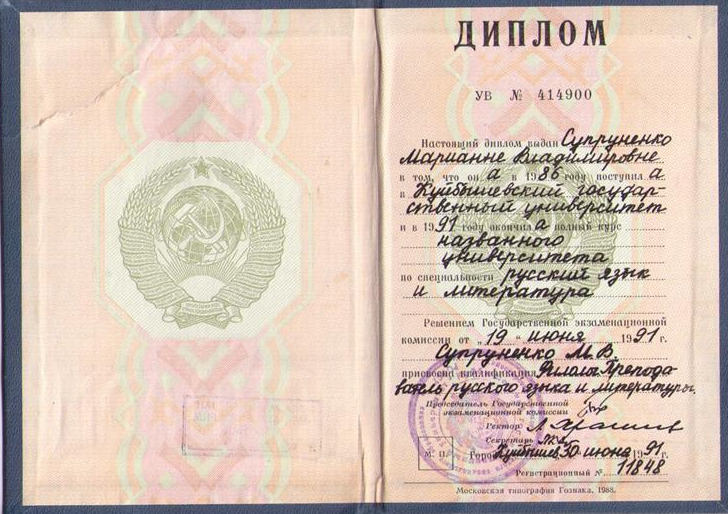 ДИПЛОМ
УВ № 414900
Настоящий диплом выдан Супруненко
Марианне Владимировне
в том, что он а в 1986 году поступил а
в Куйбышевский государ-
ственный университет
и в 1991 году окончил а полный курс
названного
университета
по специальности русский язык
и литература
Решением Государственной экзаменационной
комиссии от „19“ июня 1991 г.
Супруненко М. В.
присвоена квалификация Филолог Препода
ватель русского языка и литературы.
Председатель Государственной
экзаменационной комиссии
Ректор
Секретарь
М. П. Город Куйбышев 30 июня 1991 г.
Регистрационный № 11848
Московская типография Гознака. 1988.